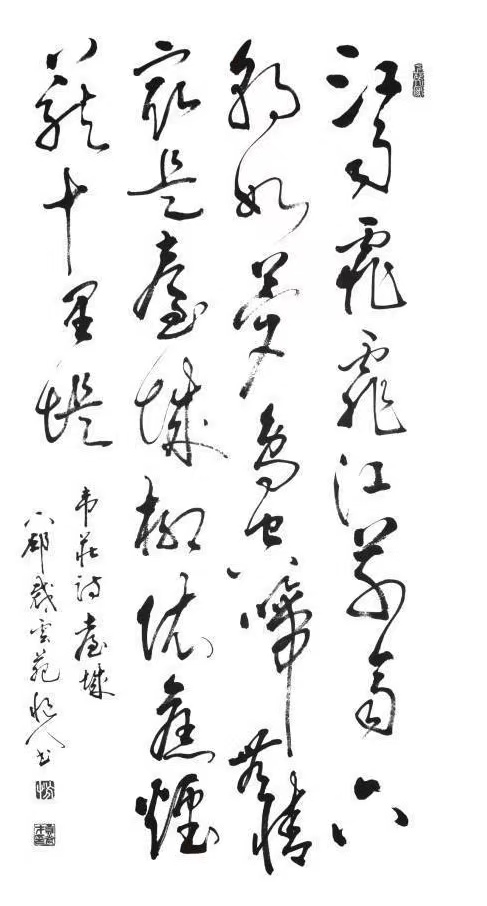 江雨霏霏江草齊六
朝如夢鳥空啼無情
最是臺城柳依舊煙
籠十里堤
韦莊詩臺城
雲苑 人书